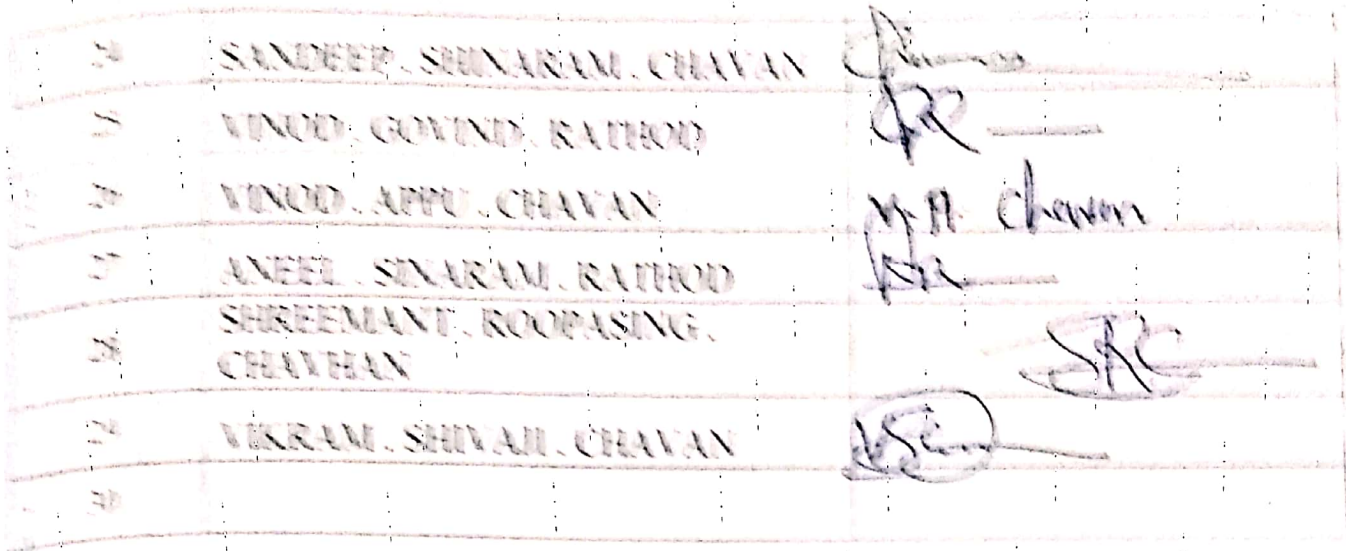 24 SANDEEP. SHINARAM. CHAVAN
25 VINOD. GOVIND. RATHOD
26 VINOD. APPU. CHAVAN V. A. Chavan
27 ANEEL. SINARAM. RATHOD
SHREEMANT. ROOPASING.
28 CHAVHAN SRC
29 VIKRAM. SHIVAJI. CHAVAN
30